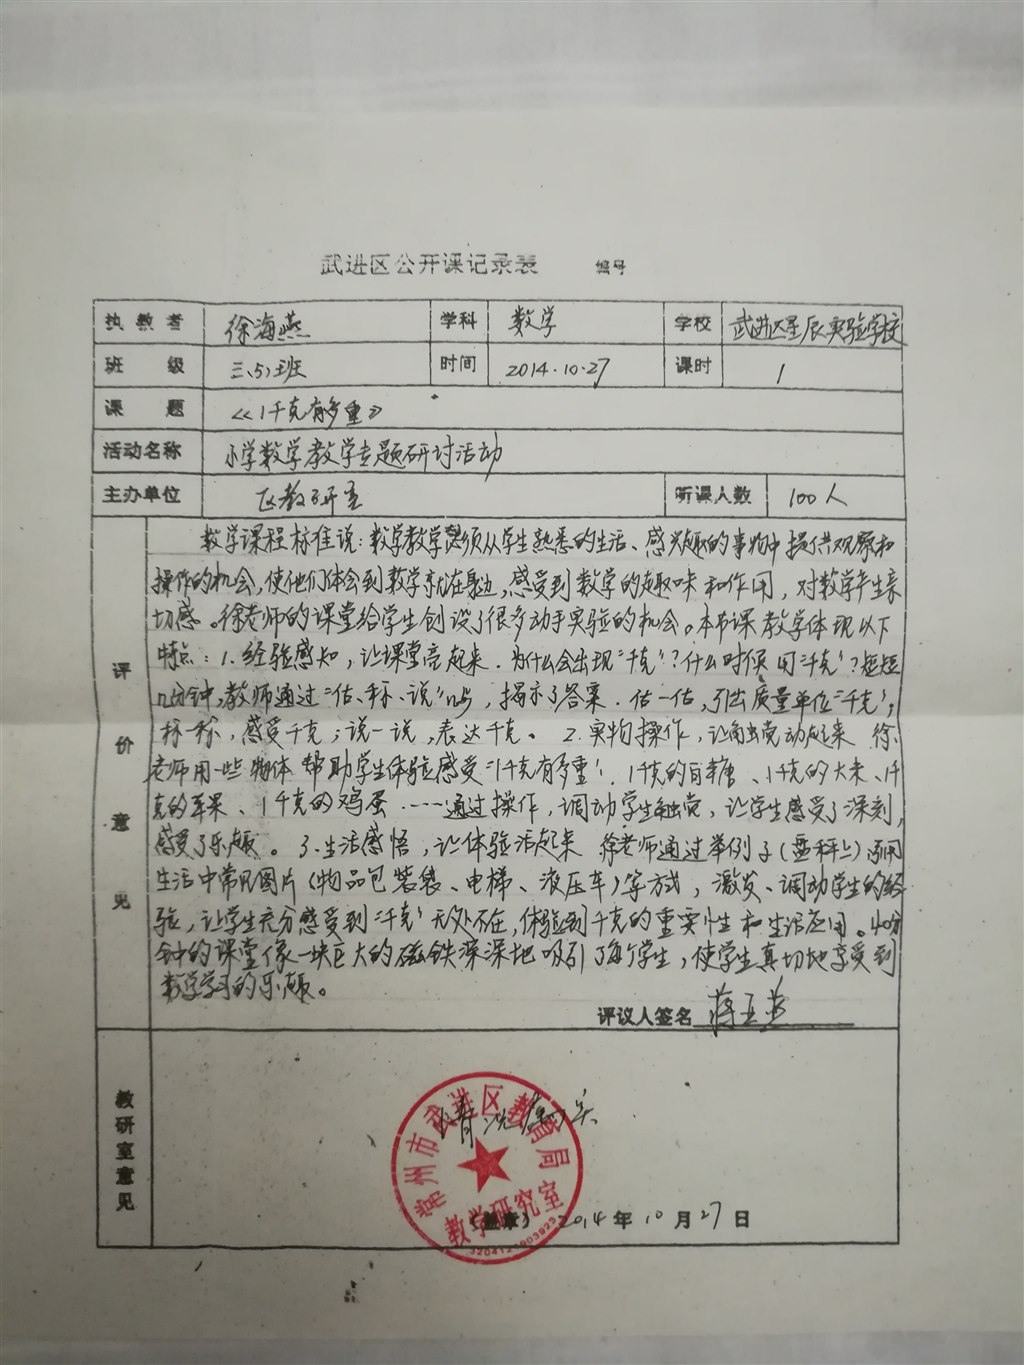 武进区公开课记录表 编号
执教者 徐海燕 学科 数学 学校 武进区星辰实验学校
班级 三(5)班 时间 2014.10.27 课时 1
课题 《1千克有多重》
活动名称 小学数学教学专题研讨活动
主办单位 区教研室 听课人数 100人
评价意见
数学课程标准说：数学教学必须从学生熟悉的生活、感兴趣的事物中提供观察和
操作的机会，使他们体会到数学就在身边，感受到数学的趣味和作用，对数学产生亲
切感。徐老师的课堂给学生创设了很多动手实验的机会。本节课教学体现以下
特点：1.经验感知，让课堂亮起来.为什么会出现“千克”？什么时候用“千克”？短短
几分钟，教师通过“估、称、说”几步，揭示了答案.估一估，引出质量单位“千克”；
称一称，感受千克；说一说，表达千克。2.实物操作，让触觉动起来 徐
老师用一些物体帮助学生体验感受“1千克有多重”.1千克的白糖、1千克的大米、1千
克的苹果、1千克的鸡蛋……通过操作，调动学生触觉，让学生感受了深刻，
感受了乐趣。3.生活感悟，让体验活起来 徐老师通过举例子(盘秤上)
生活中常见图片(物品包装袋、电梯、液压车)等方式，激发、调动学生的经
验，让学生充分感受到“千克”无处不在，体验到千克的重要性和生活应用。40分
钟的课堂像一块巨大的磁铁深深地吸引了每个学生，使学生真切地享受到
数学学习的乐趣。
评议人签名
教研室意见
情况属实
常州市武进区教育局
教学研究室
(盖章) 2014年10月27日